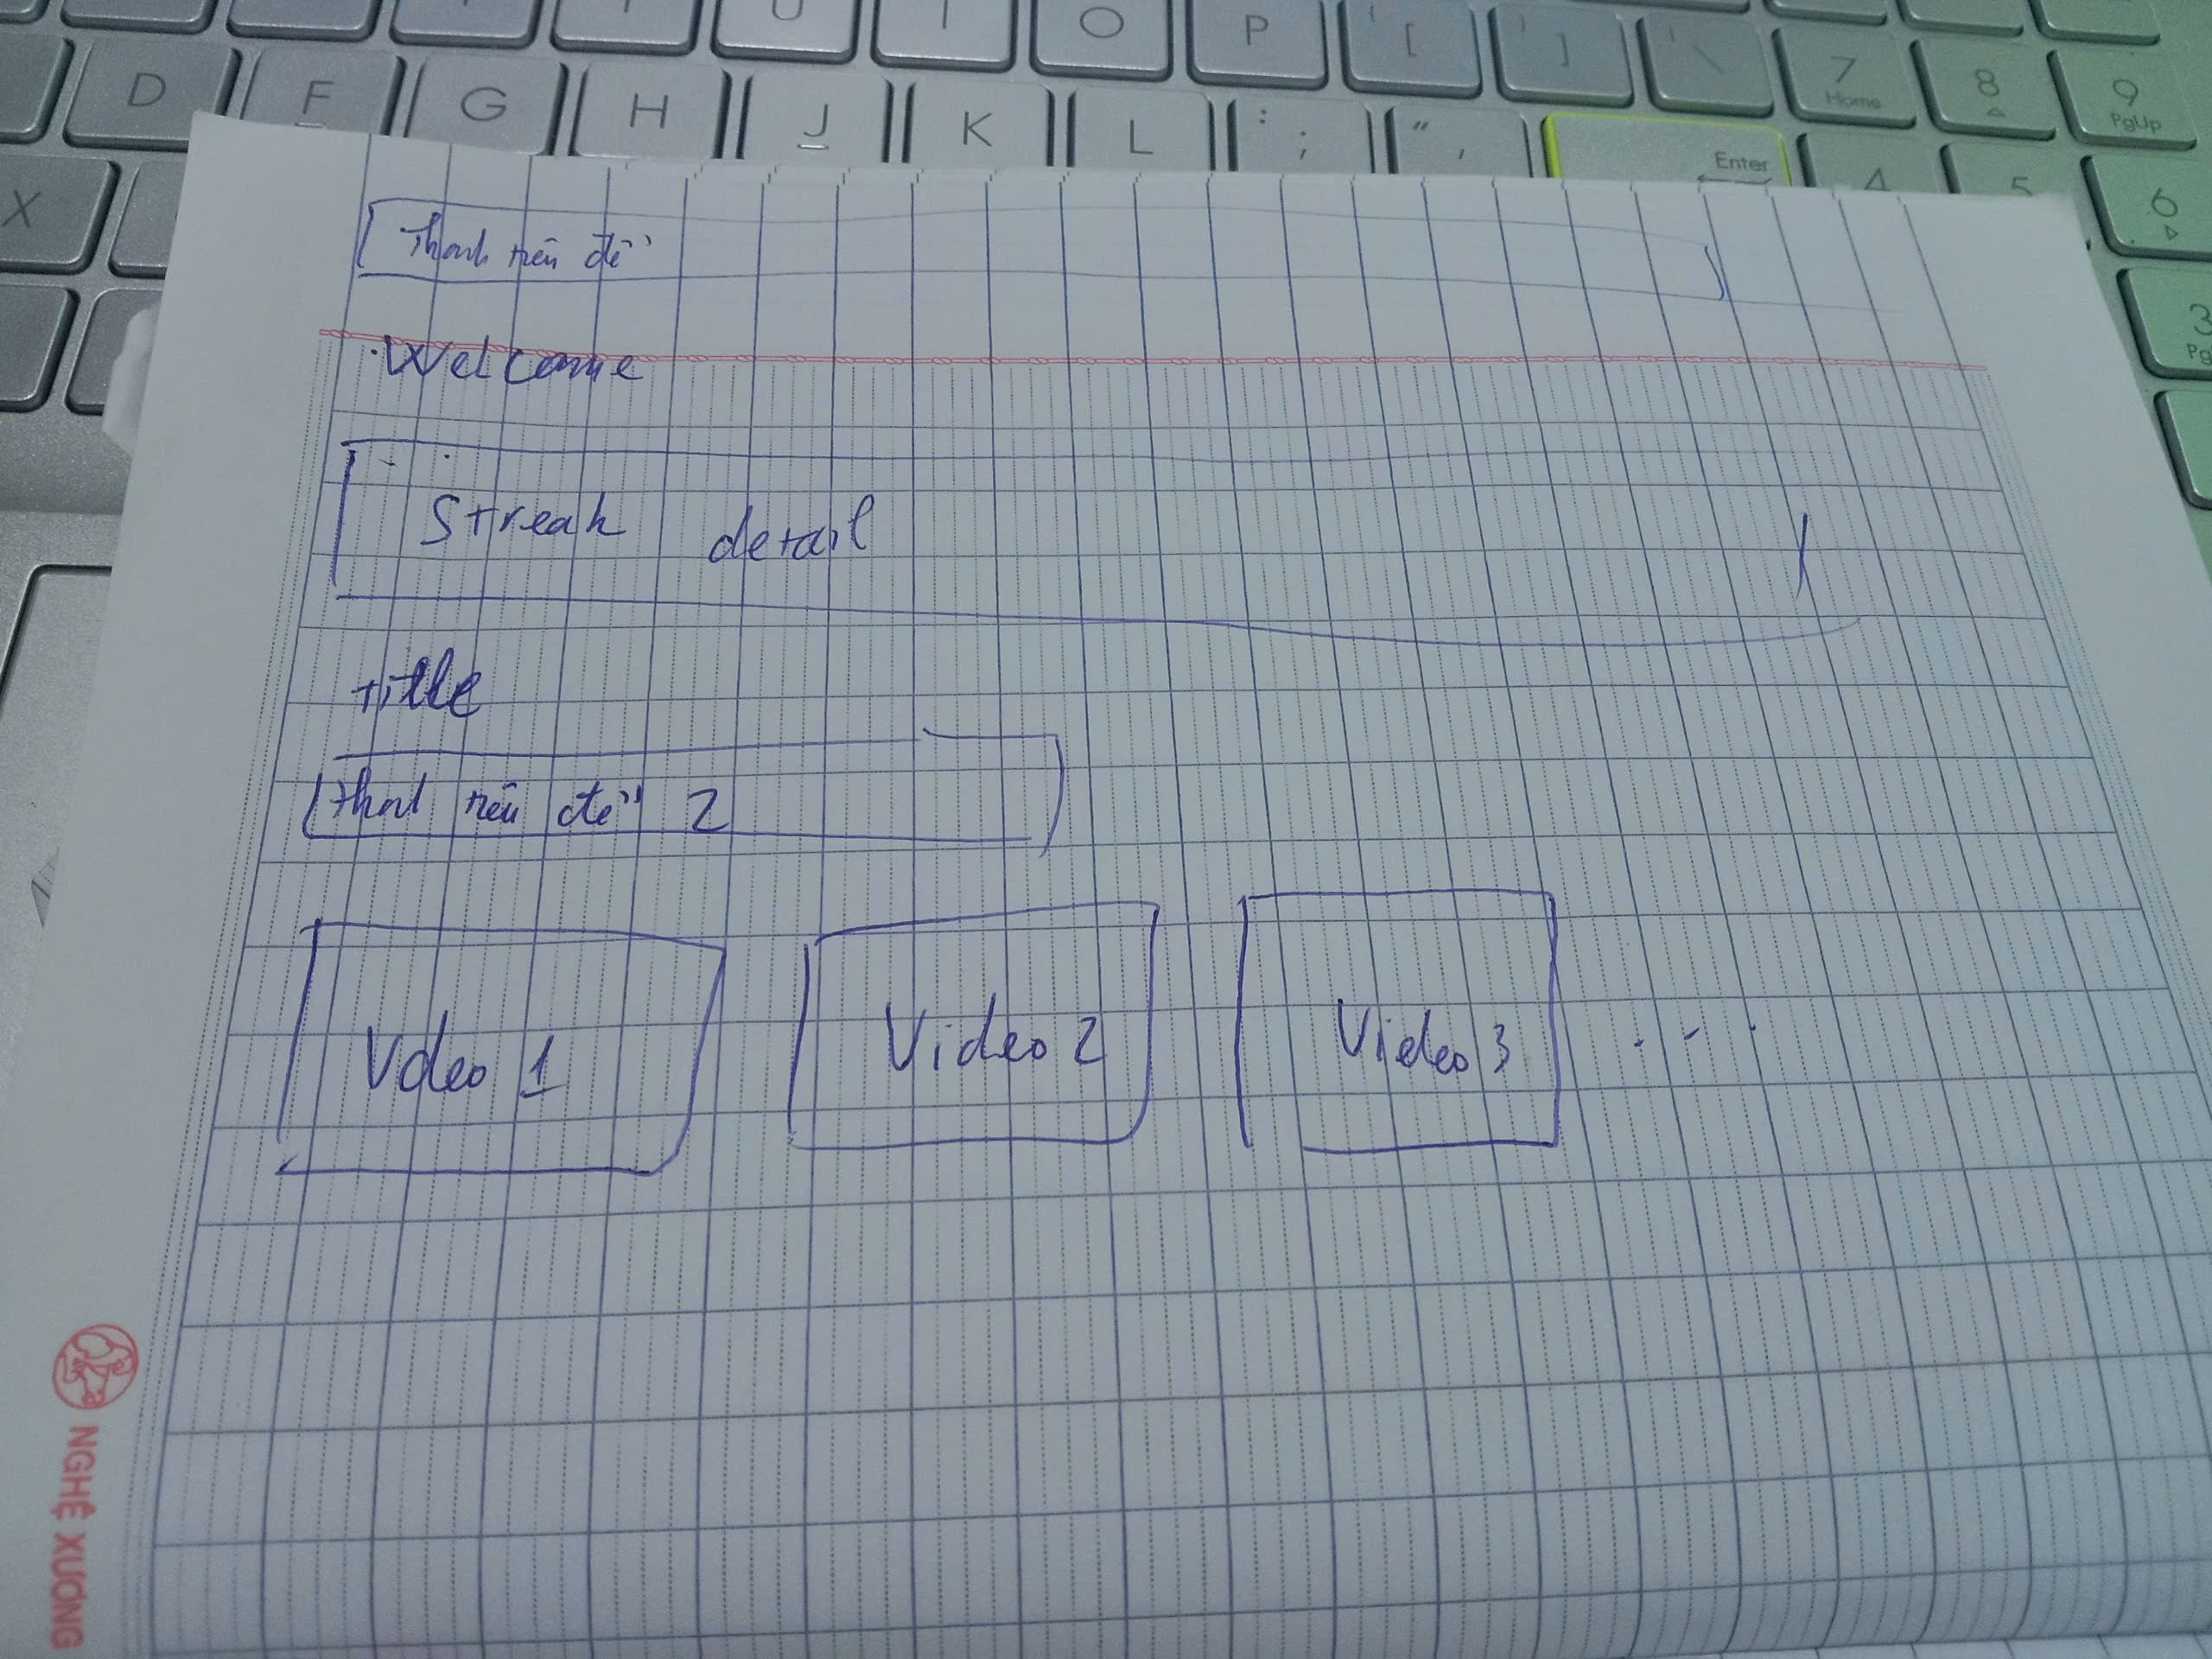 U I O P [ ] \
D F G H J K L : ; " , Enter
7 Home 8 9 PgUp
X 4 5 6
3
Thanh tiêu đề
Welcome
Streak detail
title
Thanh tiêu đề 2
Vdeo 1 Video 2 Video 3 ...
NGHỆ XƯƠNG